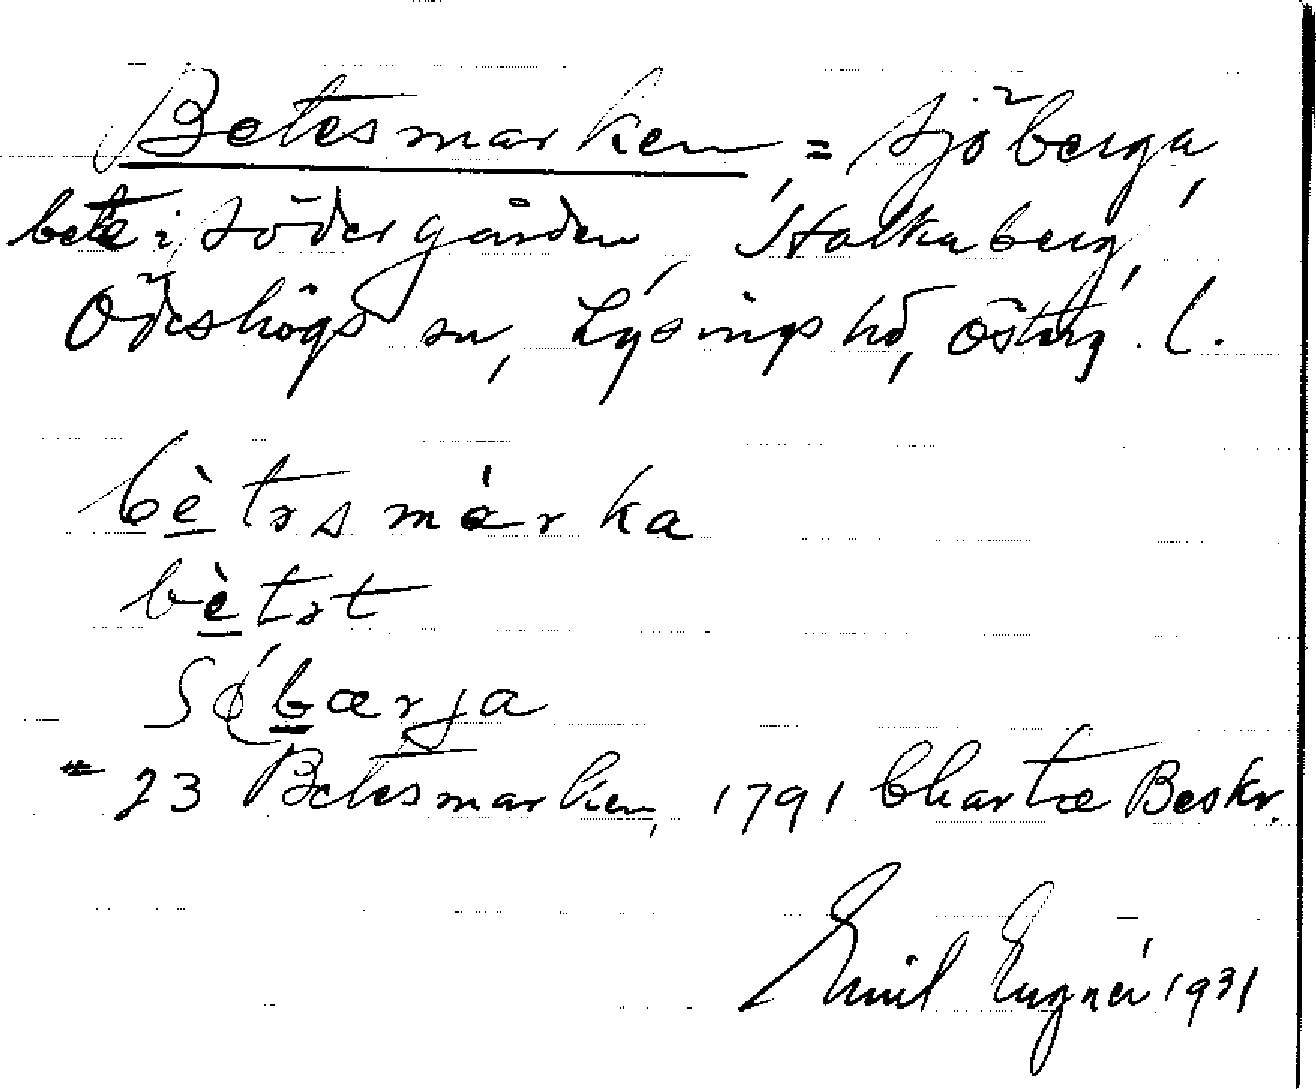 Betesmarken, = Sjöberga,
bete i Södergården, Stolkaberg,
Ödeshögs sn, Lysings hd, Österg. l.
bètɜsmárka
bètɜt
Sǿbærja
23 Betesmarken, 1791 Chartæ Beskr.
Emil Eugnér 1931